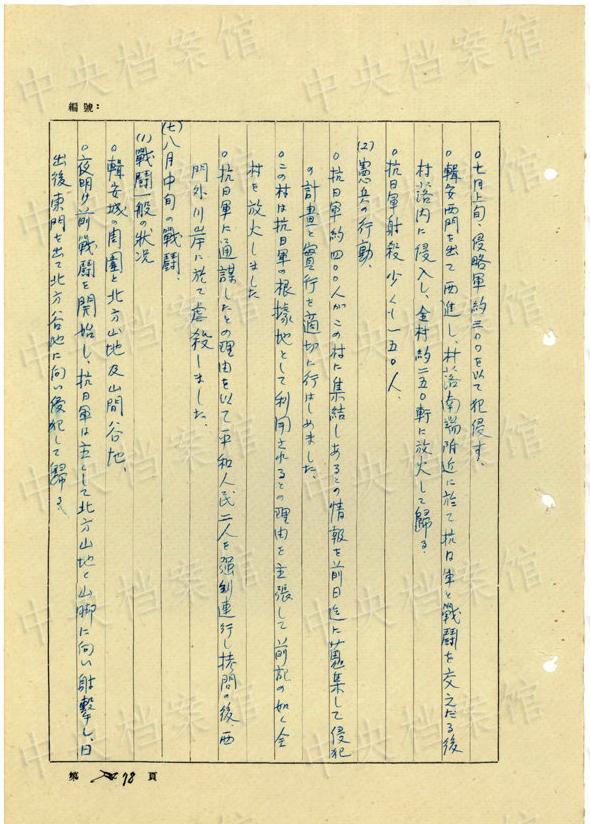 編號：
〇七月上旬、侵略軍約三〇〇を以て犯侵す。
〇輯安西門を出て西進し、村落南端附近に於て抗日軍と戰鬪を交えたる後
村落内に侵入し、全村約二五〇軒に放火して歸る。
〇抗日軍射殺少くも一五〇人、
(2)憲兵の行動、
〇抗日軍約四〇〇人がこの村に集結しあるとの情報を前日迄に蒐集して侵犯
の計畫と實行を適切に行はしめました。
〇この村は抗日軍の根據地として利用されるとの理由を主張して前記の如く全
村を放火しました
〇抗日軍に通謀したとの理由を以て平和人民二人を强制連行し拷問の後、西
門外川岸に於て虐殺しました。
(七)八月中旬の戰鬪、
(1)戰鬪一般の狀況
〇輯安城の周圍と北方山地及山間谷地、
〇夜明け前戰鬪を開始し、抗日軍は主として北方山地と山脚に向い射擊し、日
出後東門を出て北方谷地に向い侵犯して歸る
第 78 頁
中央档案馆